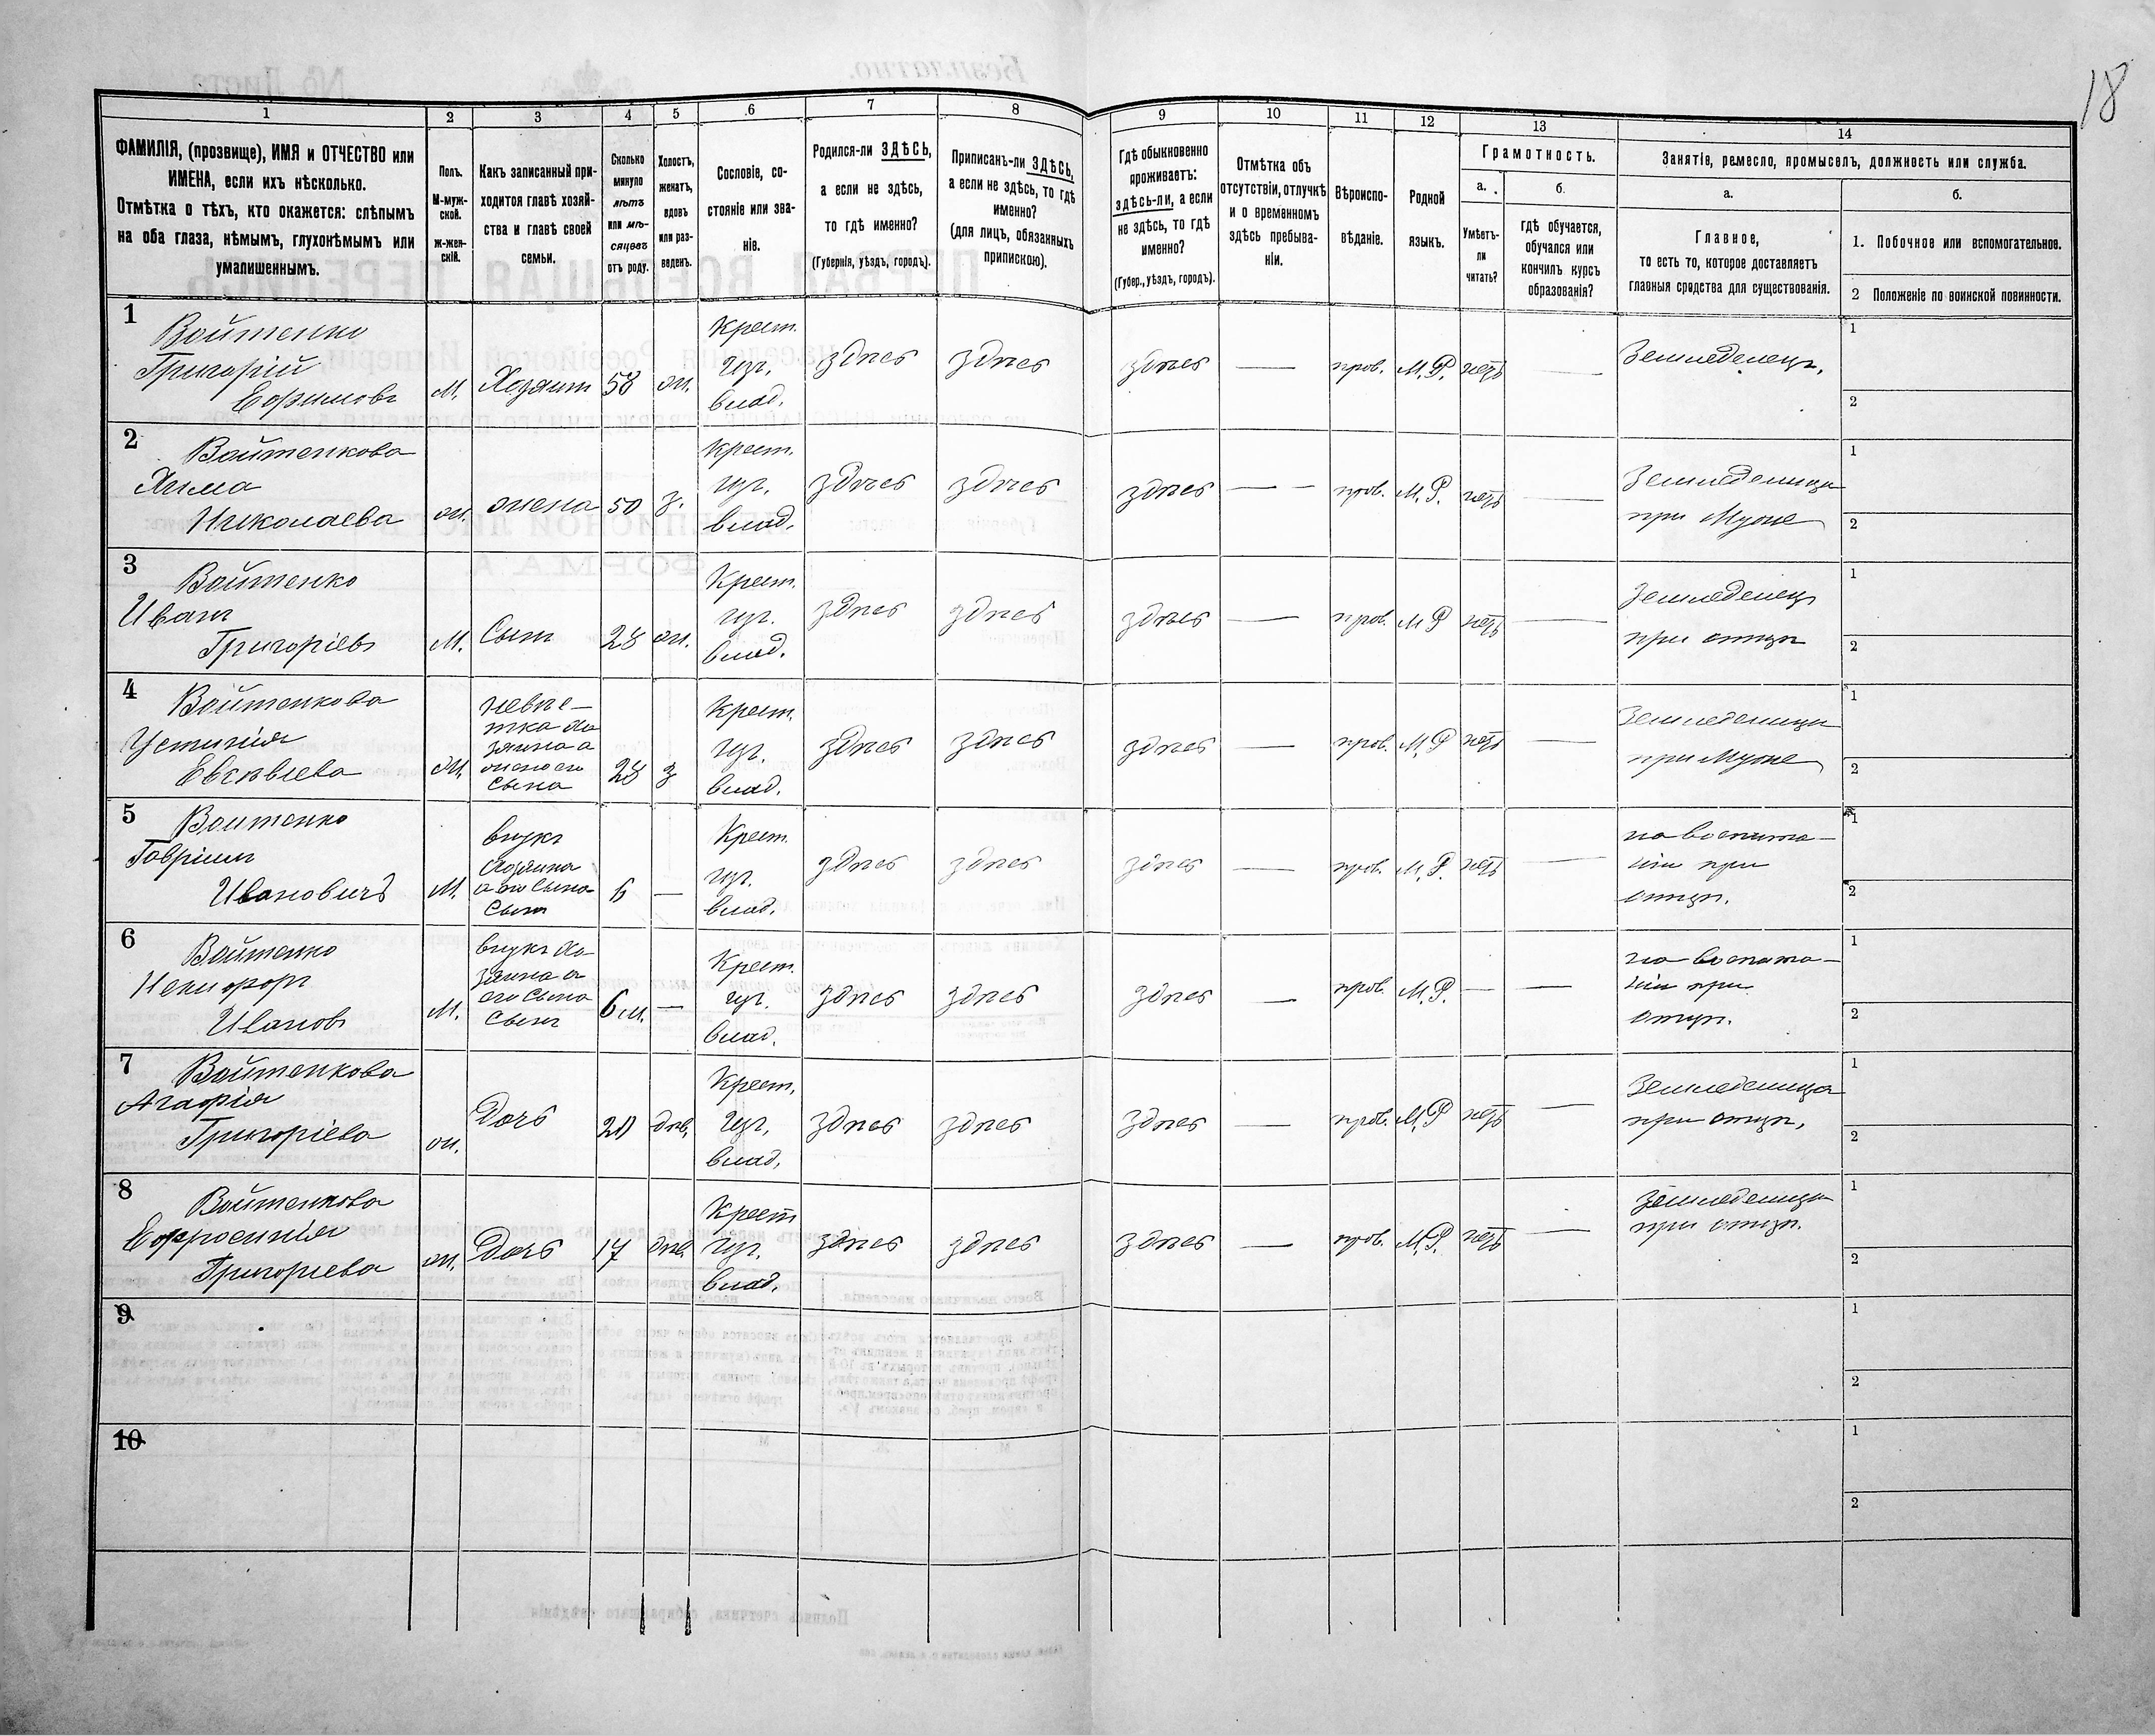 18
1
2
3
4
5
6
7
8
9
10
11
12
13
14
ФАМИЛІЯ, (прозвище), ИМЯ и ОТЧЕСТВО или
ИМЕНА, если ихъ нѣсколько.
Отмѣтка о тѣхъ, кто окажется: слѣпымъ
на оба глаза, нѣмымъ, глухонѣмымъ или
умалишеннымъ.
Полъ.
М-муж-
ской.
Ж-жен-
скій.
Какъ записанный при-
ходится главѣ хозяй-
ства и главѣ своей
семьи.
Сколько
минуло
лѣтъ
или мѣ-
сяцевъ
отъ роду.
Холостъ,
женатъ,
вдовъ
или раз-
веденъ.
Сословіе, со-
стояніе или зва-
ніе.
Родился-ли ЗДѢСЬ,
а если не здѣсь,
то гдѣ именно?
(Губернія, уѣздъ, городъ).
Приписанъ-ли ЗДѢСЬ,
а если не здѣсь, то гдѣ
именно?
(для лицъ, обязанныхъ
припискою).
Гдѣ обыкновенно
проживаетъ:
здѣсь-ли, а если
не здѣсь, то гдѣ
именно?
(Губер., уѣздъ, городъ).
Отмѣтка объ
отсутствіи, отлучкѣ
и о временномъ
здѣсь пребыва-
ніи.
Вѣроиспо-
вѣданіе.
Родной
языкъ.
Грамотность.
а.
Умѣетъ-
ли
читать?
б.
гдѣ обучается,
обучался или
кончилъ курсъ
образованія?
Занятіе, ремесло, промыселъ, должность или служба.
а.
Главное,
то есть то, которое доставляетъ
главныя средства для существованія.
б.
1. Побочное или вспомогательное.
2 Положеніе по воинской повинности.
1
Войтенко
Григорій
Ефимовъ
М.
Хозяинъ
58
ж.
Крест.
влад.
здѣсь
здѣсь
здѣсь
—
прав.
М.Р.
нетъ
—
Земледелецъ.
1
2
2
Войтенкова
Хима
Николаева
ж.
жена
50
з.
Крест.
влад.
здѣсь
здѣсь
здѣсь
— —
прав.
М.Р.
нетъ
—
Земледелица
при Муже
1
2
3
Войтенко
Иванъ
Григоріевъ
М.
Сынъ
28
ж.
Крест.
влад.
здѣсь
здѣсь
здѣсь
—
прав.
М Р
нетъ
—
Земледелецъ
при отцѣ
1
2
4
Войтенкова
Устинія
ж.
невѣс-
тка хо
зяина а
жена его
сына
28
з
Крест.
влад.
здѣсь
здѣсь
здѣсь
—
прав.
М.Р
нетъ
—
Земледелица
при Муже
1
2
5
Войтенко
Гавріилъ
Ивановичъ
М.
внукъ
хозяина
а его сына
сынъ
6
—
Крест.
влад.
здѣсь
здѣсь
здѣсь
—
прав.
М.Р.
нетъ
—
на воспита—
ніи при
отцѣ.
1
2
6
Войтенко
Никифоръ
Ивановъ
М.
внукъ хо
зяина а
его сына
сынъ
6 м.
—
Крест.
влад.
здѣсь
здѣсь
здѣсь
—
прав.
М.Р.
—
—
на воспита—
ніи при
отцѣ.
1
2
7
Войтенкова
Агафія
Григоріева
ж.
Дочь
20
дѣв.
Крест.
влад.
здѣсь
здѣсь
здѣсь
—
прав.
М.Р
нетъ
—
Земледелица
при отцѣ.
1
2
8
Войтенкова
Ефросинія
Григорiева
ж.
Дочь
17
дѣв.
Крест
влад.
здѣсь
здѣсь
здѣсь
—
прав.
М.Р.
нетъ
—
Земледелица
при отцѣ.
1
2
9
1
2
10
1
2